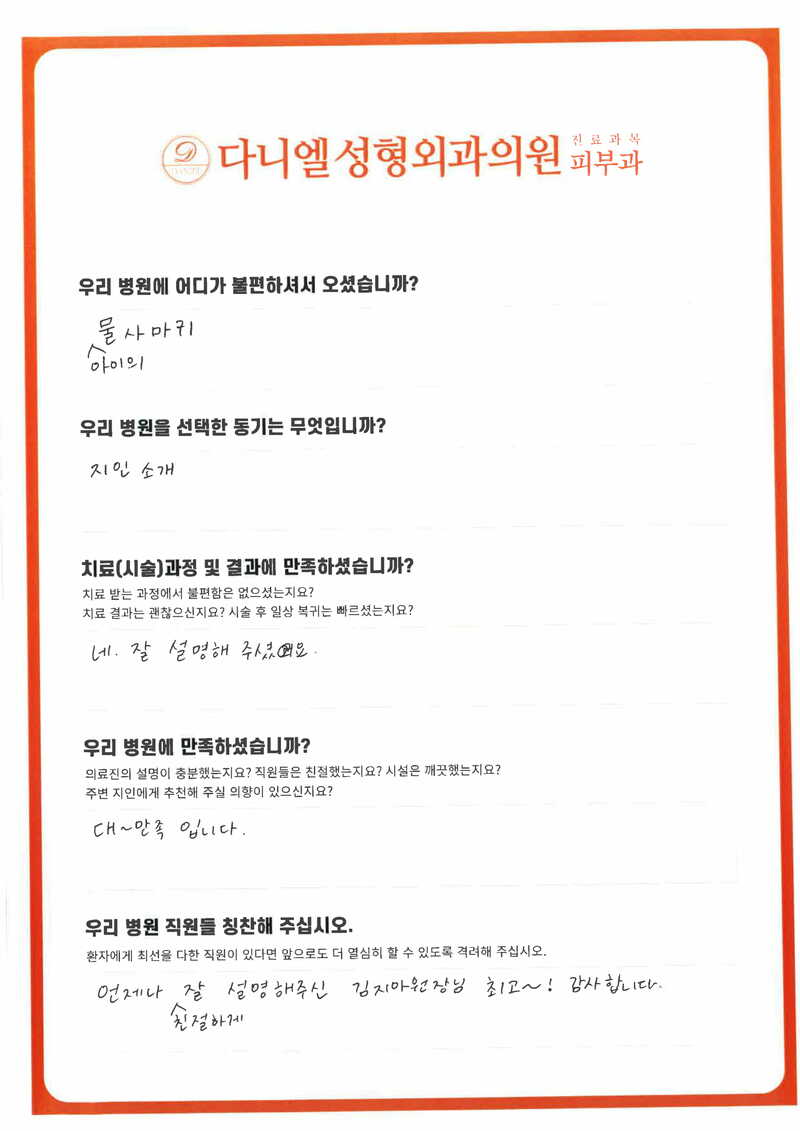 다니엘성형외과의원 진료과목 피부과
DANIEL
우리 병원에 어디가 불편하셔서 오셨습니까?
물사마귀
아이의
우리 병원을 선택한 동기는 무엇입니까?
지인 소개
치료(시술)과정 및 결과에 만족하셨습니까?
치료 받는 과정에서 불편함은 없으셨는지요?
치료 결과는 괜찮으신지요? 시술 후 일상 복귀는 빠르셨는지요?
네. 잘 설명해 주셨어요.
우리 병원에 만족하셨습니까?
의료진의 설명이 충분했는지요? 직원들은 친절했는지요? 시설은 깨끗했는지요?
주변 지인에게 추천해 주실 의향이 있으신지요?
대~만족 입니다.
우리 병원 직원들 칭찬해 주십시오.
환자에게 최선을 다한 직원이 있다면 앞으로도 더 열심히 할 수 있도록 격려해 주십시오.
언제나 잘 설명해주신 김지아원장님 최고~! 감사합니다.
친절하게